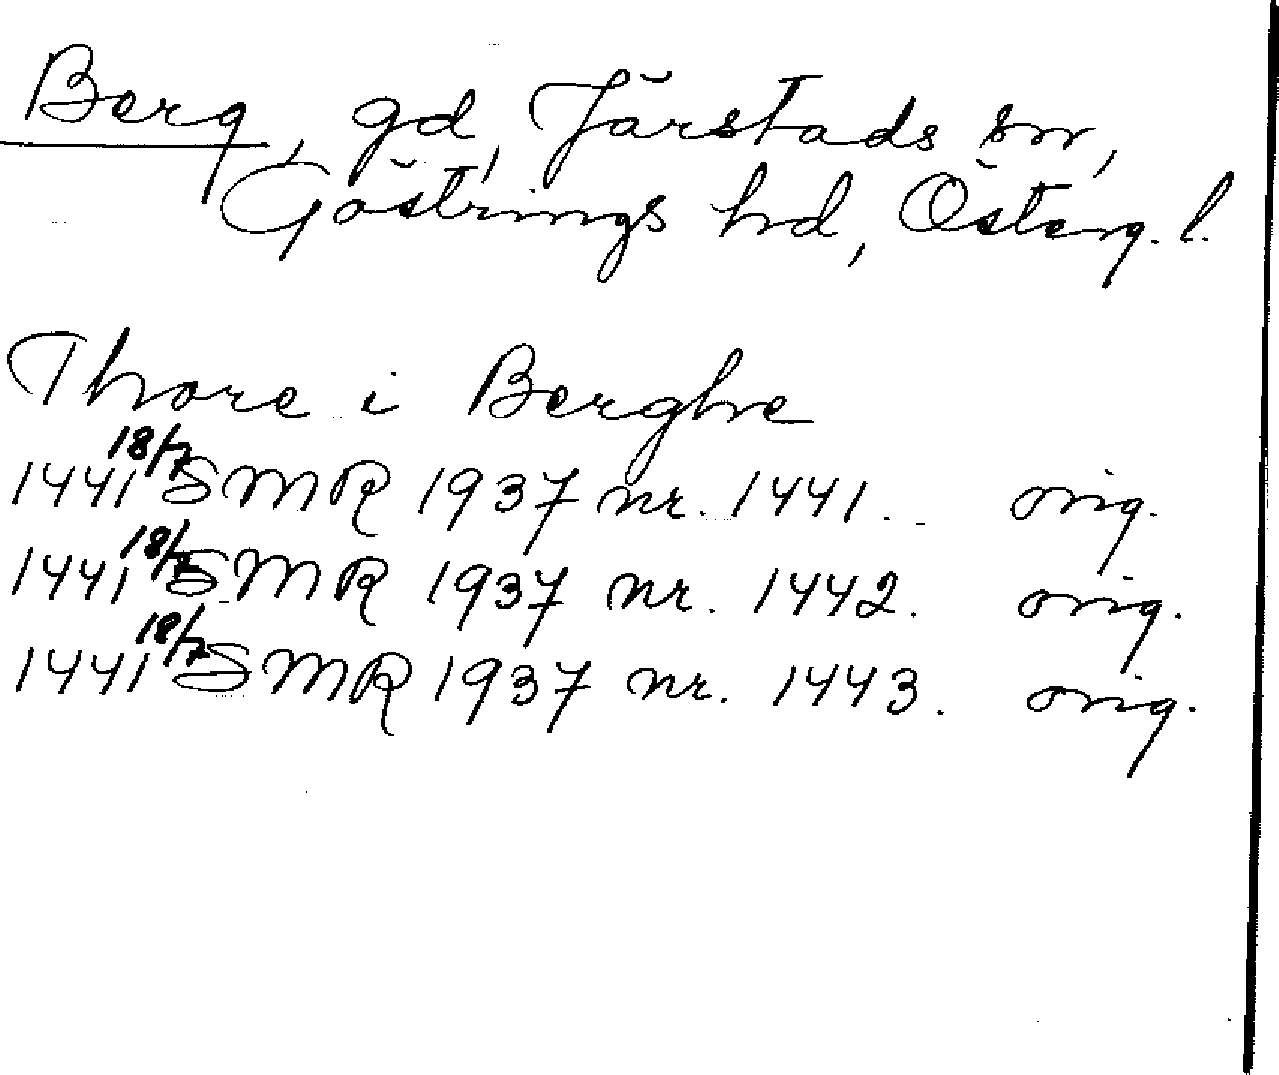 Berg, gd, Järstads sn,
Göstrings hd, Österg. l.
Thore i Berghe
1441 18/7 SMR 1937 nr. 1441. orig.
1441 18/7 SMR 1937 nr. 1442. orig.
1441 18/7 SMR 1937 nr. 1443. orig.